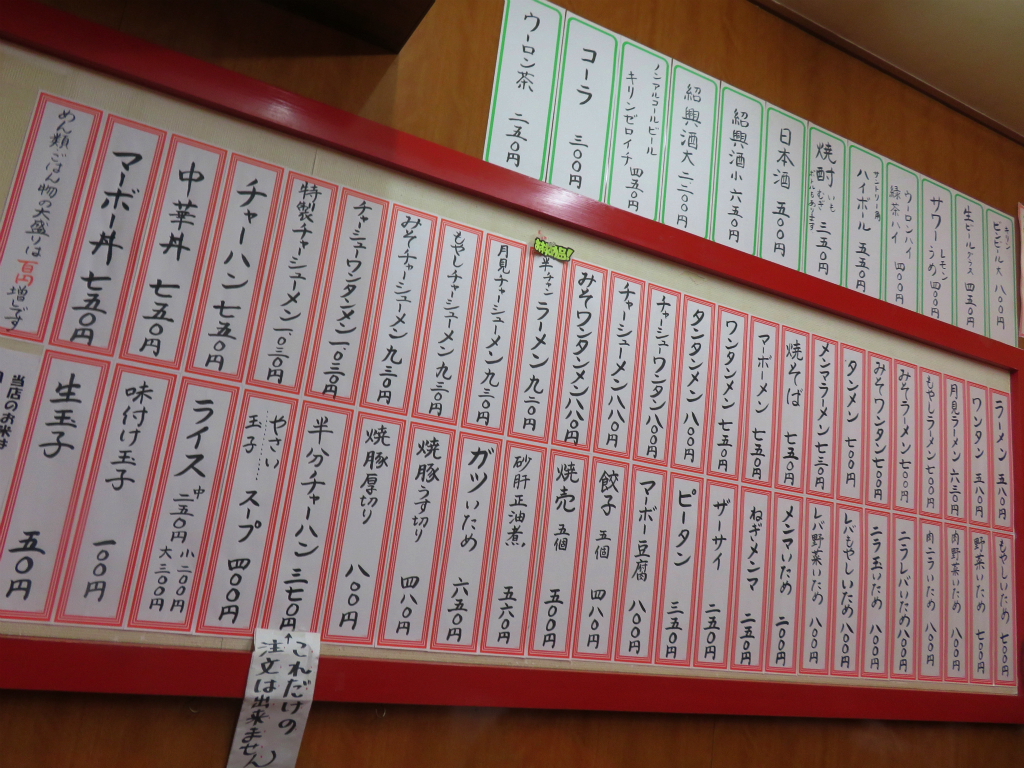 キリン ビンビール 大 八〇〇円
生ビールグラス 四五〇円
サワー レモン うめ 四〇〇円
ウーロンハイ 緑茶ハイ 四〇〇円
サントリー角 ハイボール 五五〇円
焼酎 いも むぎ 三五〇円
日本酒 五〇〇円
紹興酒 小 六五〇円
紹興酒 大 二二〇〇円
ノンアルコールビール
キリンゼロイチ 四五〇円
コーラ 三〇〇円
ウーロン茶 二五〇円
ラーメン 五八〇円
ワンタン 五八〇円
月見ラーメン 六三〇円
もやしラーメン 七〇〇円
みそラーメン 七〇〇円
みそワンタン 七〇〇円
タンメン 七〇〇円
メンマラーメン 七三〇円
焼そば 七五〇円
マーボーメン 七五〇円
ワンタンメン 七五〇円
タンタンメン 八〇〇円
チャーシューワンタン 八〇〇円
チャーシューメン 八八〇円
みそワンタンメン 八八〇円
ラーメン 九三〇円
月見チャーシューメン 九三〇円
もやしチャーシューメン 九三〇円
みそチャーシューメン 九三〇円
チャーシューワンタンメン 一〇三〇円
特製チャーシューメン 一〇三〇円
チャーハン 七五〇円
中華丼 七五〇円
マーボー丼 七五〇円
めん類ごはん物の大盛りは百円増しです
もやしいため 七〇〇円
野菜いため 七〇〇円
肉野菜いため 八〇〇円
肉ニラいため 八〇〇円
ニラレバいため 八〇〇円
ニラ玉いため 八〇〇円
レバもやしいため 八〇〇円
レバ野菜いため 八〇〇円
メンマいため 七〇〇円
ねぎメンマ 二五〇円
ザーサイ 二五〇円
ピータン 三五〇円
マーボー豆腐 八〇〇円
餃子 五個 四八〇円
焼売 五個 五〇〇円
砂肝正油煮 五六〇円
ガツいため 六五〇円
焼豚うす切り 四八〇円
焼豚厚切り 八〇〇円
半分チャーハン 三七〇円
やさい 玉子 スープ 四〇〇円
ライス 中 二五〇円 小 二〇〇円 大 三〇〇円
味付け玉子 一〇〇円
生玉子 五〇円
当店のお米は
↑これだけの
注文は出来ません